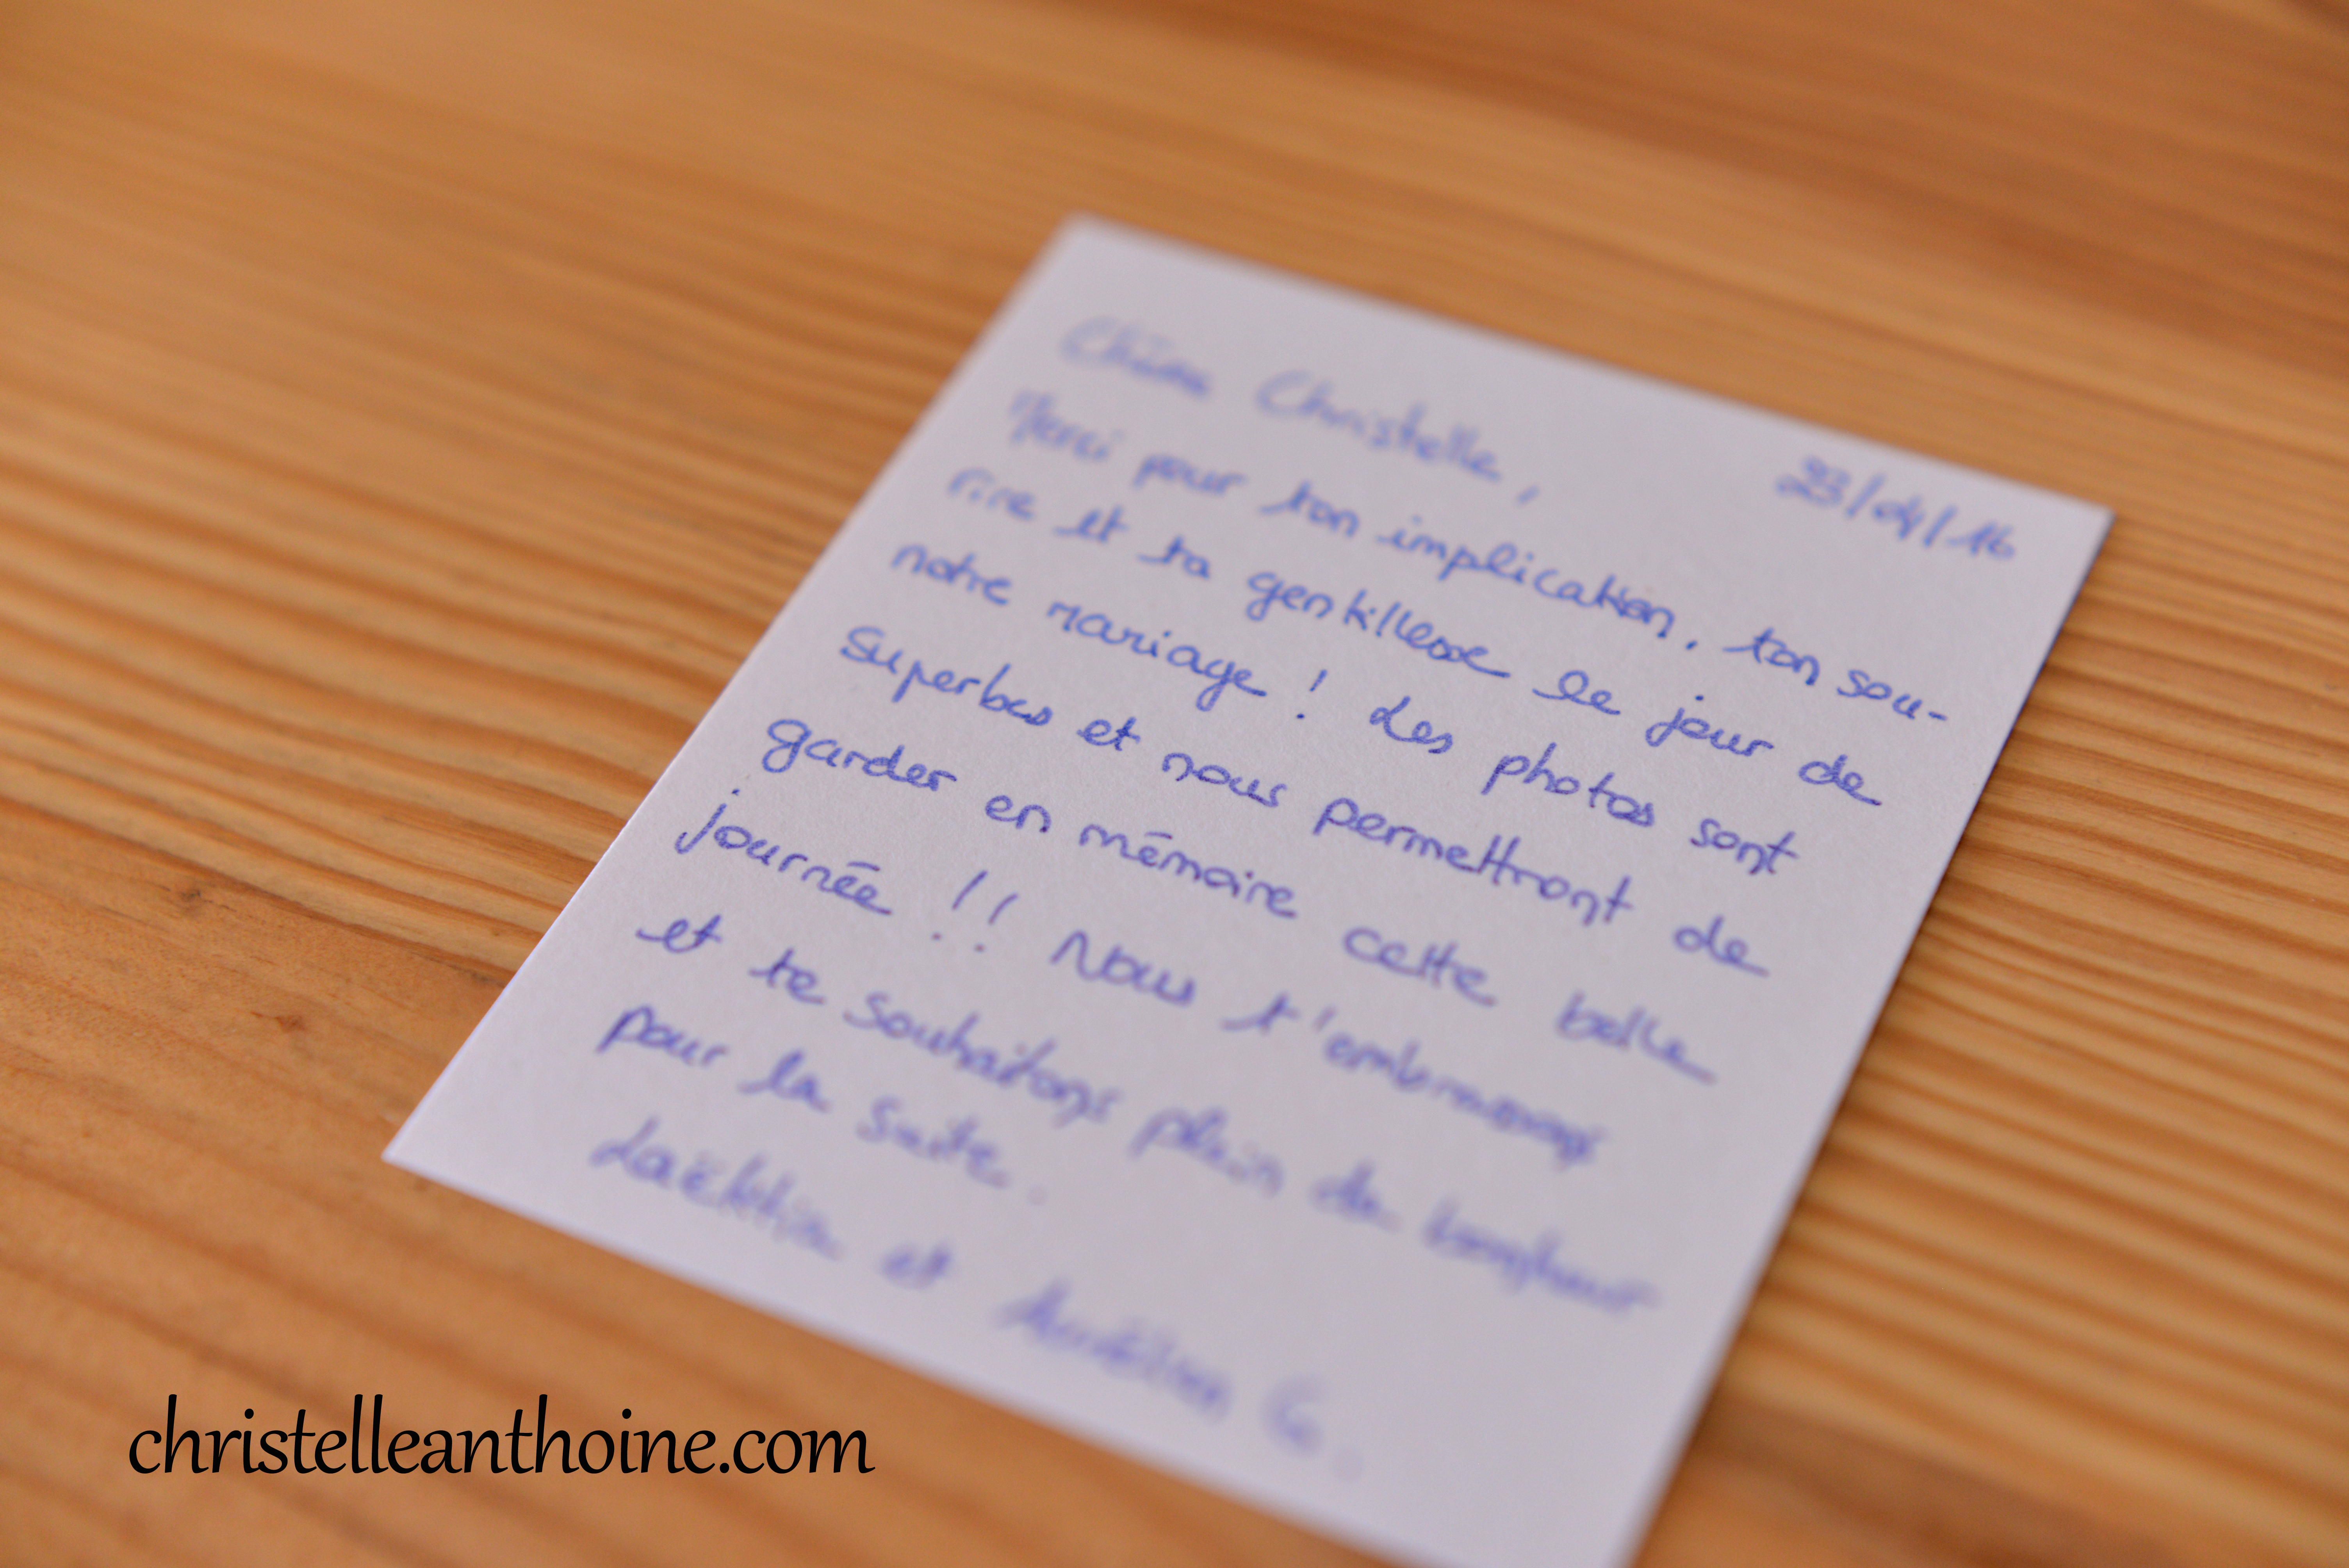 Chère Christelle,
23/04/16
Merci pour ton implication, ton sou-
rire et ta gentillesse le jour de
notre mariage ! Les photos sont
superbes et nous permettront de
garder en mémoire cette belle
journée !! Nous t'embrassons
et te souhaitons plein de bonheur
pour la suite.
Laëtitia et Aurélien G.
christelleanthoine.com